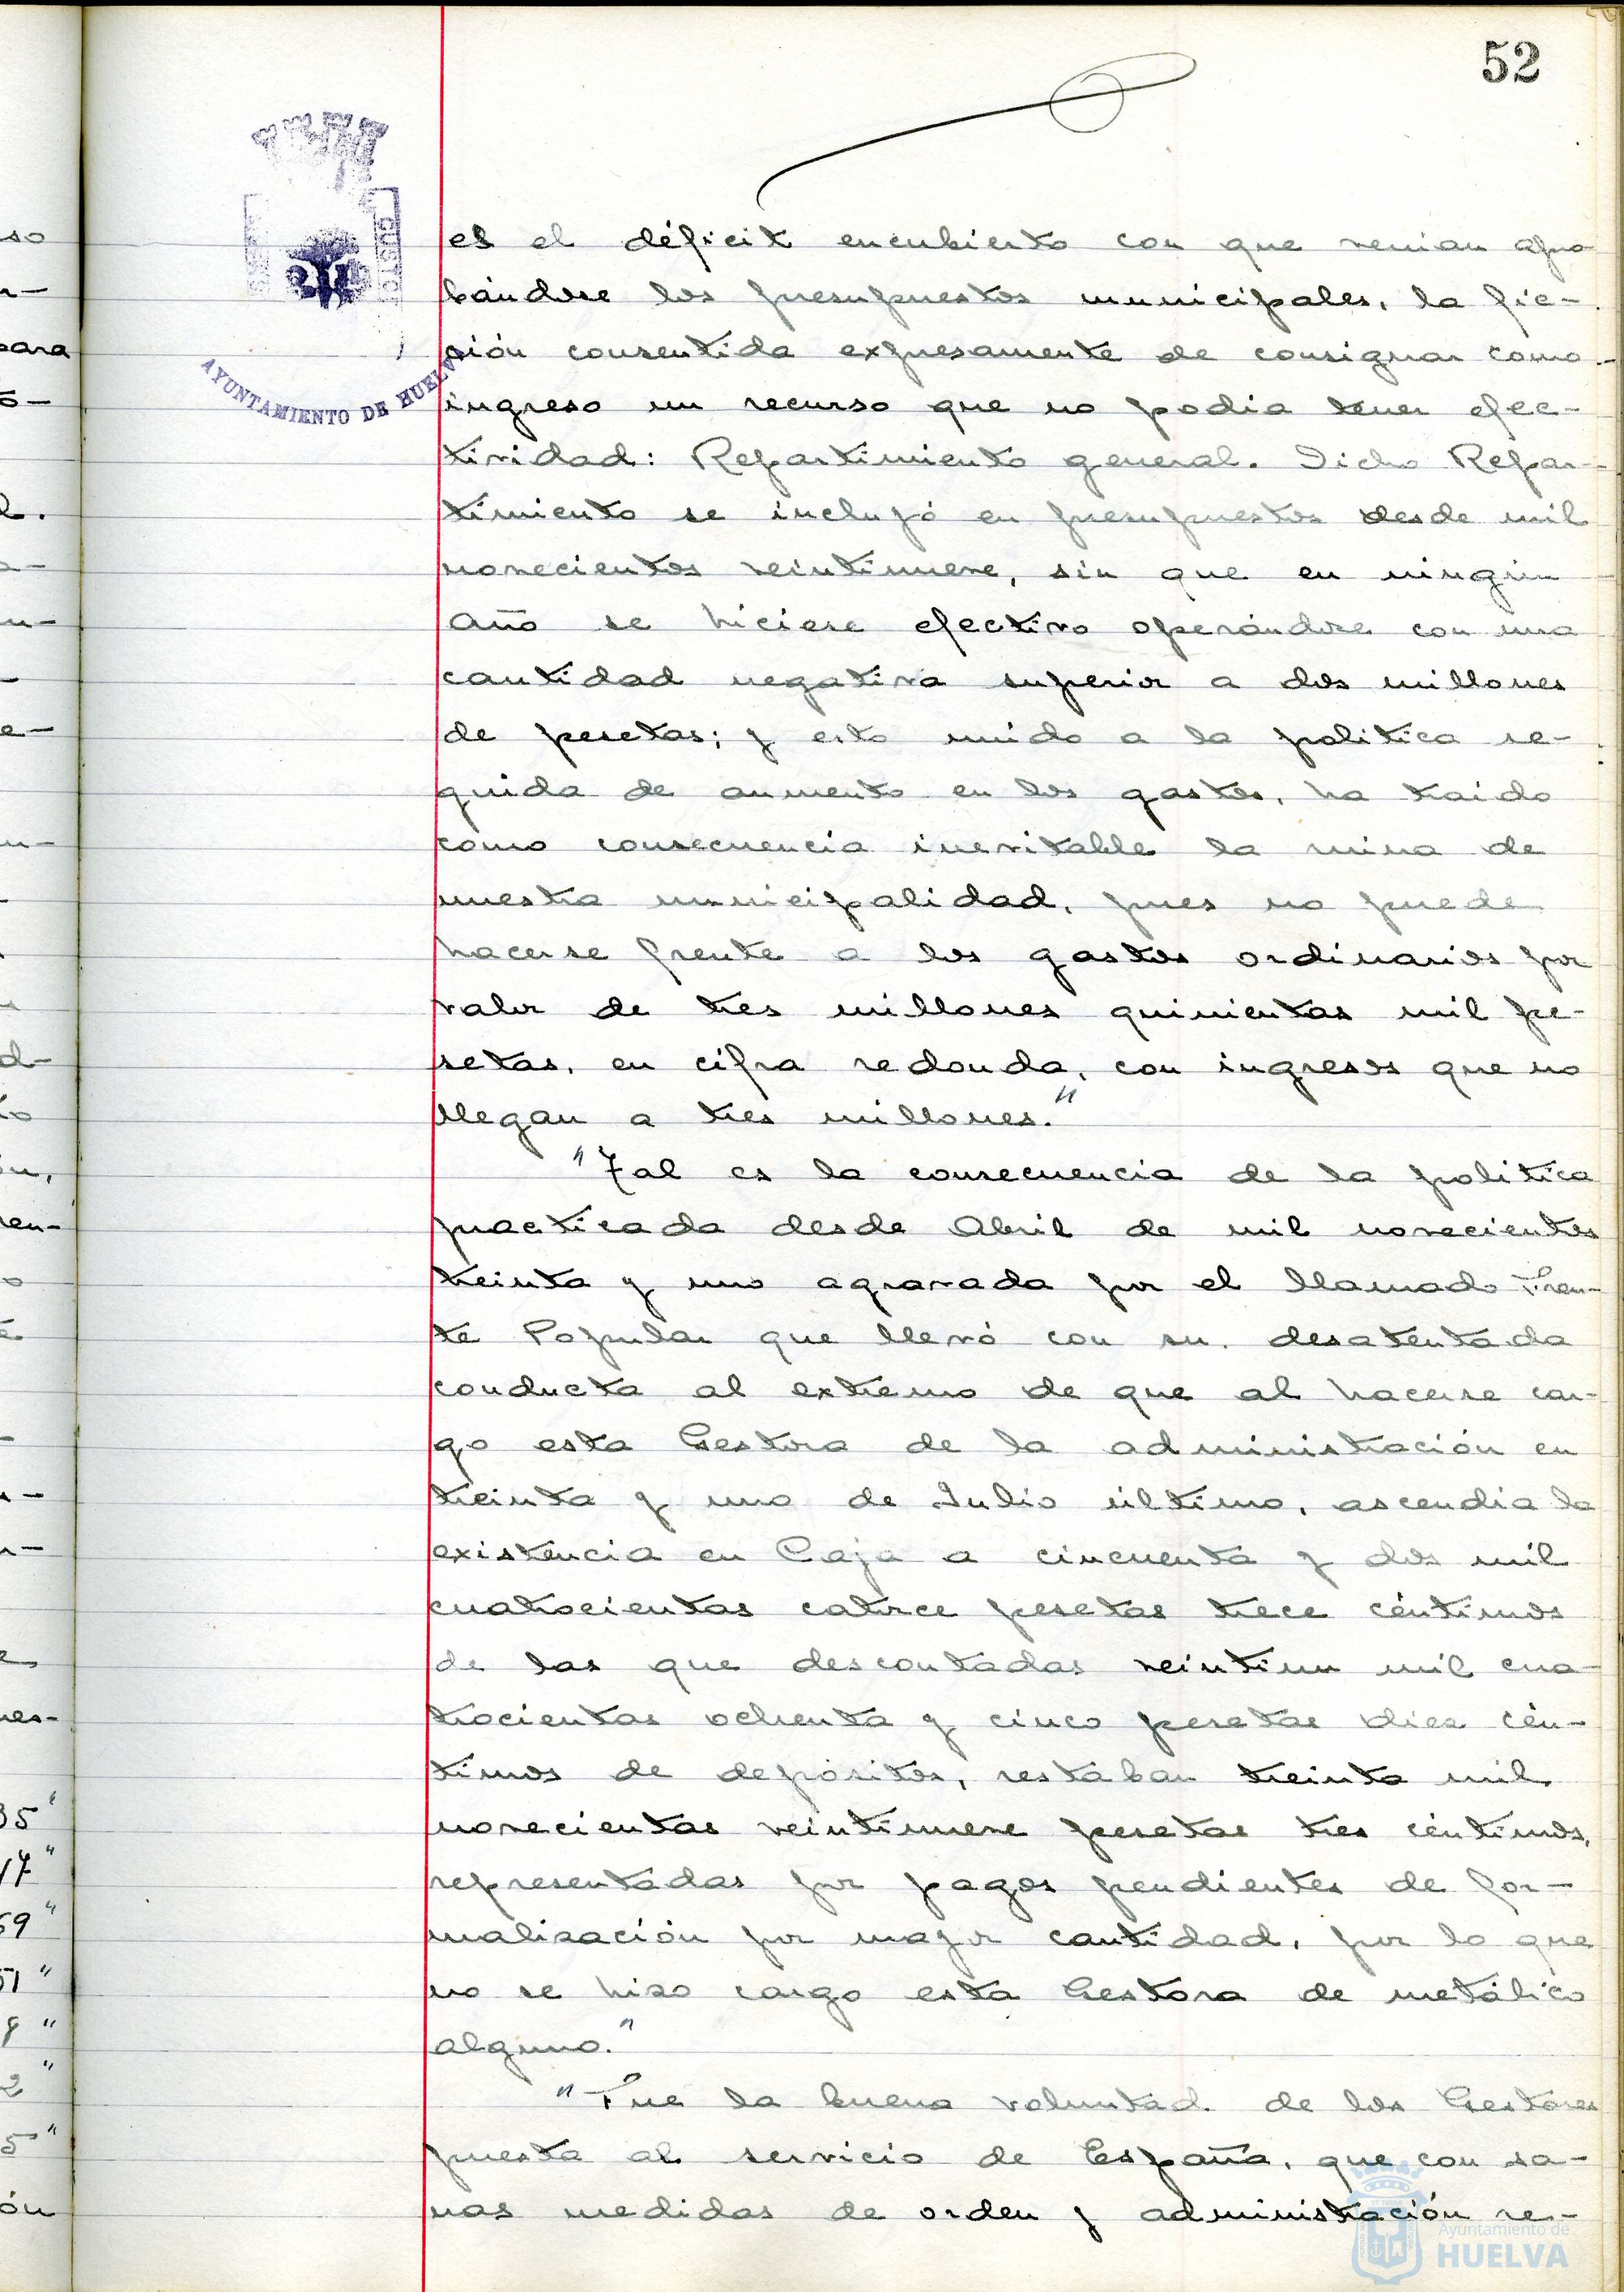 52
AYUNTAMIENTO DE HUELVA
es el déficit encubierto con que venian apro
bándose los presupuestos municipales, la fic-
ción consentida expresamente de consignar como
ingreso un recurso que no podia tener efec-
tividad: Repartimiento general. Dicho Repar-
timiento se incluyó en presupuestos desde mil
novecientos veintinueve, sin que en ningún
año se hiciese efectivo operándose con una
cantidad negativa superior a dos millones
de pesetas; y esto unido a la politica se-
guida de aumento en los gastos, ha traido
como consecuencia inevitable la ruina de
nuestra municipalidad, pues no puede
hacerse frente a los gastos ordinarios por
valor de tres millones quinientas mil pe-
setas, en cifra redonda, con ingresos que no
llegan a tres millones."
"Tal es la consecuencia de la politica
practicada desde Abril de mil novecientos
treinta y uno agravada por el llamado Fren-
te Popular que llevó con su desatentada
conducta al extremo de que al hacerse car-
go esta Gestora de la administración en
treinta y uno de Julio último, ascendia la
existencia en Caja a cincuenta y dos mil
cuatrocientas catorce pesetas trece céntimos
de las que descontadas veintiun mil cua-
trocientas ochenta y cinco pesetas diez cén-
timos de depósitos, restában treinta mil
novecientas veintinueve pesetas tres céntimos,
representadas por pagos pendientes de for-
malización por mayor cantidad, por lo que
no se hizo cargo esta Gestora de metálico
alguno."
"Fue la buena voluntad de los Gestores
puesta al servicio de España, que con sa-
nas medidas de orden y administración re-
Ayuntamiento de
HUELVA